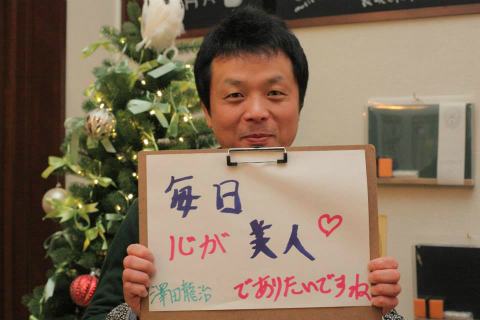 毎日
心が美人♡
でありたいですね
澤田龍治